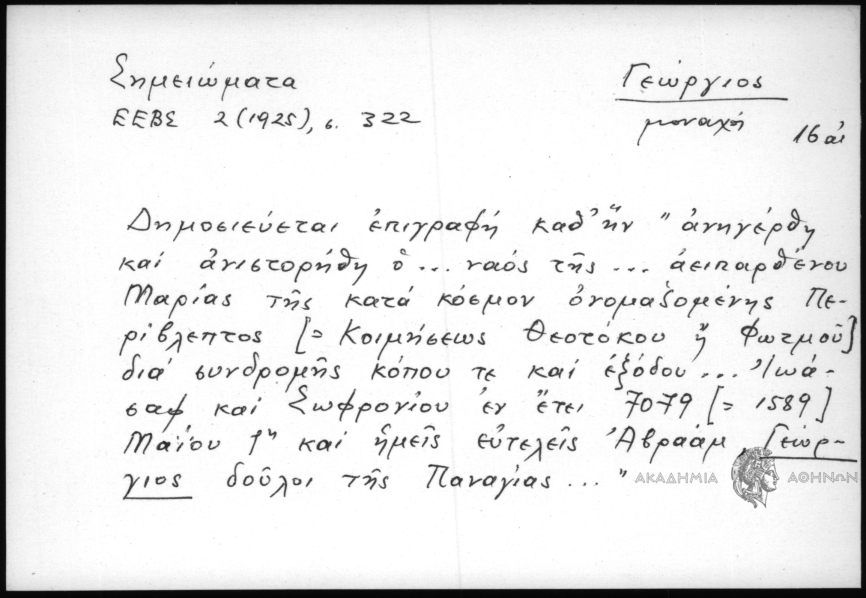 Σημειώματα
ΕΕΒΣ 2 (1925), σ. 322
Γεώργιος
μοναχός
16 αἰ
Δημοσιεύεται ἐπιγραφή καθ' ἥν "ἀνηγέρθη
καί ἀνιστορήθη ὁ ... ναός τῆς ... ἀειπαρθένου
Μαρίας τῆς κατά κόσμον ὀνομαζομένης Πε-
ρίβλεπτος [= Κοιμήσεως Θεοτόκου ἤ Φωτμοῦ]
διά συνδρομῆς κόπου τε καί ἐξόδου ... Ἰωά-
σαφ καί Σωφρονίου ἐν ἔτει 7079 [= 1589]
Μαΐου 1ῃ καί ἡμεῖς εὐτελεῖς Ἀβραάμ, Γεώρ-
γιος δοῦλοι τῆς Παναγίας ..."
ΑΚΑΔΗΜΙΑ ΑΘΗΝΩΝ